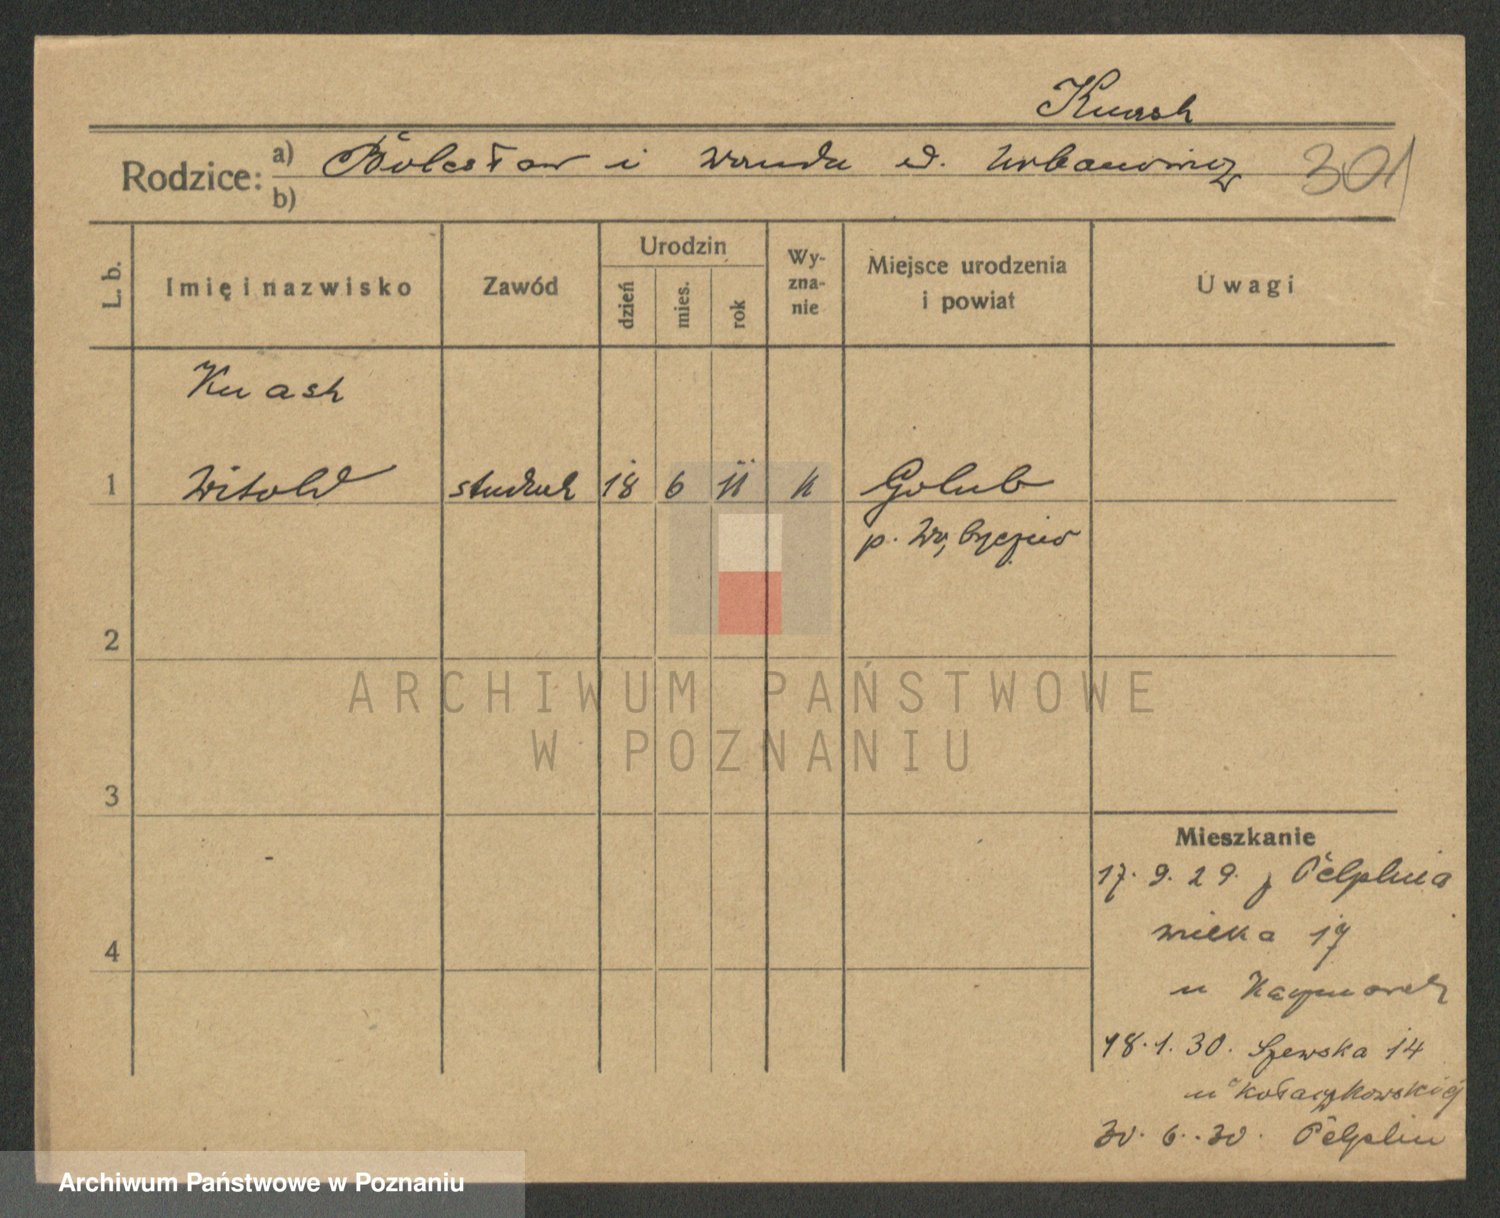 Knash
Rodzice: a) Bolesław i Wanda d. Urbanowicz 301
b)
L. b. Imię i nazwisko Zawód Urodzin dzień mies. rok Wy-zna-nie Miejsce urodzenia i powiat Uwagi
Knash
1 Witold student 18 6 11 k Golub
p. Wąbrzeźno
2
ARCHIWUM PAŃSTWOWE
W POZNANIU
3
Mieszkanie
17. 9. 29. z Pelplina
Wielka 19
u
4
18. 1. 30. Szewska 14
u Kołaczkowskiej
30. 6. 30. Pelplin
Archiwum Państwowe w Poznaniu